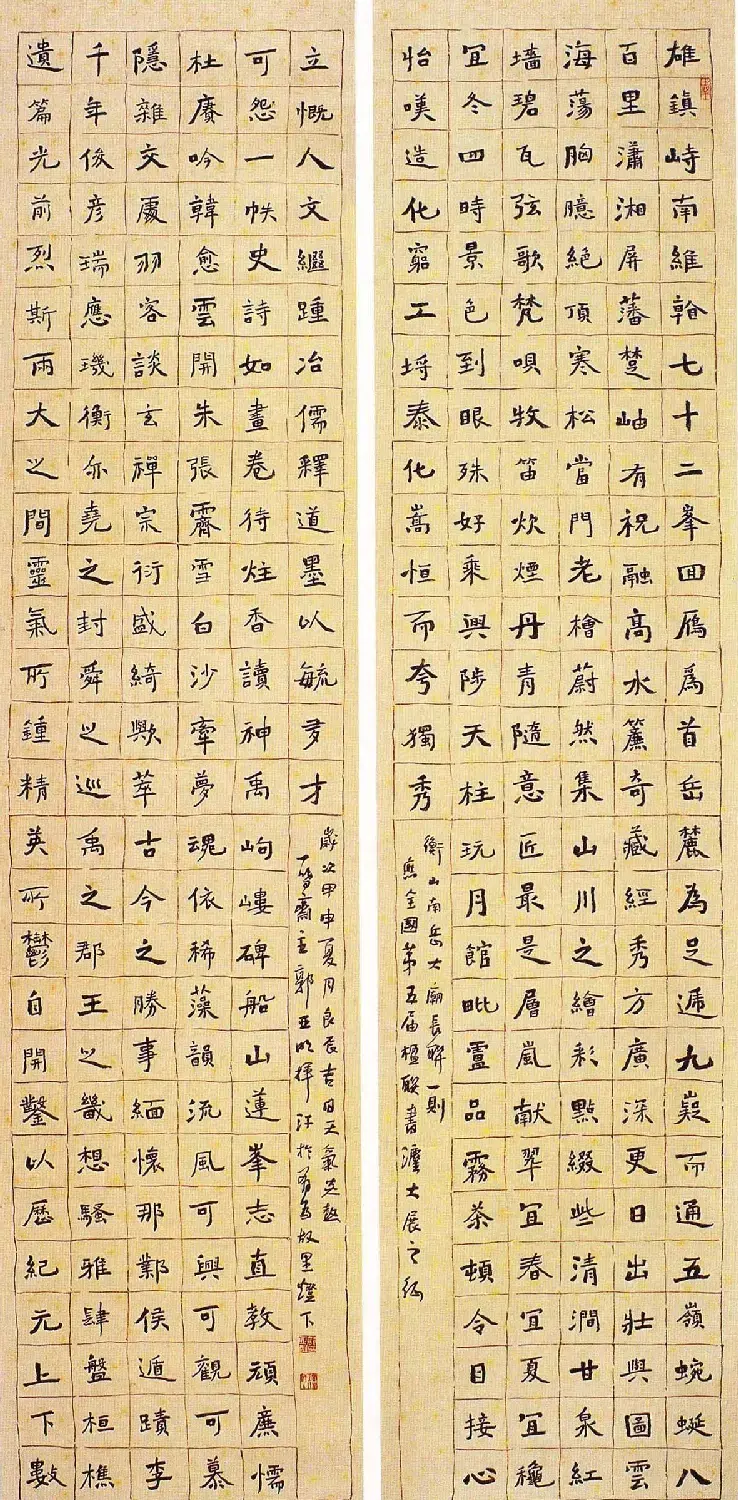 雄鎮峙南維翰七十二峯回雁爲首岳麓為足遞九嶷而通五嶺蜿蜒八
百里瀟湘屏藩楚岫有祝融高水簾奇藏經秀方廣深更日出壯輿圖雲
海蕩胸臆絕頂寒松當門老檜蔚然集山川之繪彩點綴些清澗甘泉紅
墻碧瓦弦歌梵唄牧笛炊煙丹青隨意匠最是層嵐献翠宜春宜夏宜龝
宜冬四時景色到眼殊好乘興陟天柱玩月館毗盧品霧茶頓令目接心
怡嘆造化窮工埒泰化嵩恒而夸獨秀
衡山南岳大廟長聯一則
應全國第五届楹联書法大展之征
遺篇光前烈斯兩大之間靈氣所鍾精英所鬱自開鑿以歷紀元上下數
千年俊彥瑞應璣衡亦堯之封舜之巡禹之郡王之畿想騷雅肆盤桓樵
隱雜交處羽客談玄禪宗衍盛綺歟萃古今之勝事緬懷那鄴侯遁蹟李
杜賡吟韓愈雲開朱張霽雪白沙牽夢魂依稀藻韻流風可興可觀可慕
可怨一帙史詩如畫卷待炷香讀神禹岣嶁碑船山蓮峯志直教頑廉懦
立慨人文繼踵冶儒釋道墨以毓多才
歲次甲申夏月良辰吉日天氣炎熱
齋主郭亞明揮汗於燈下